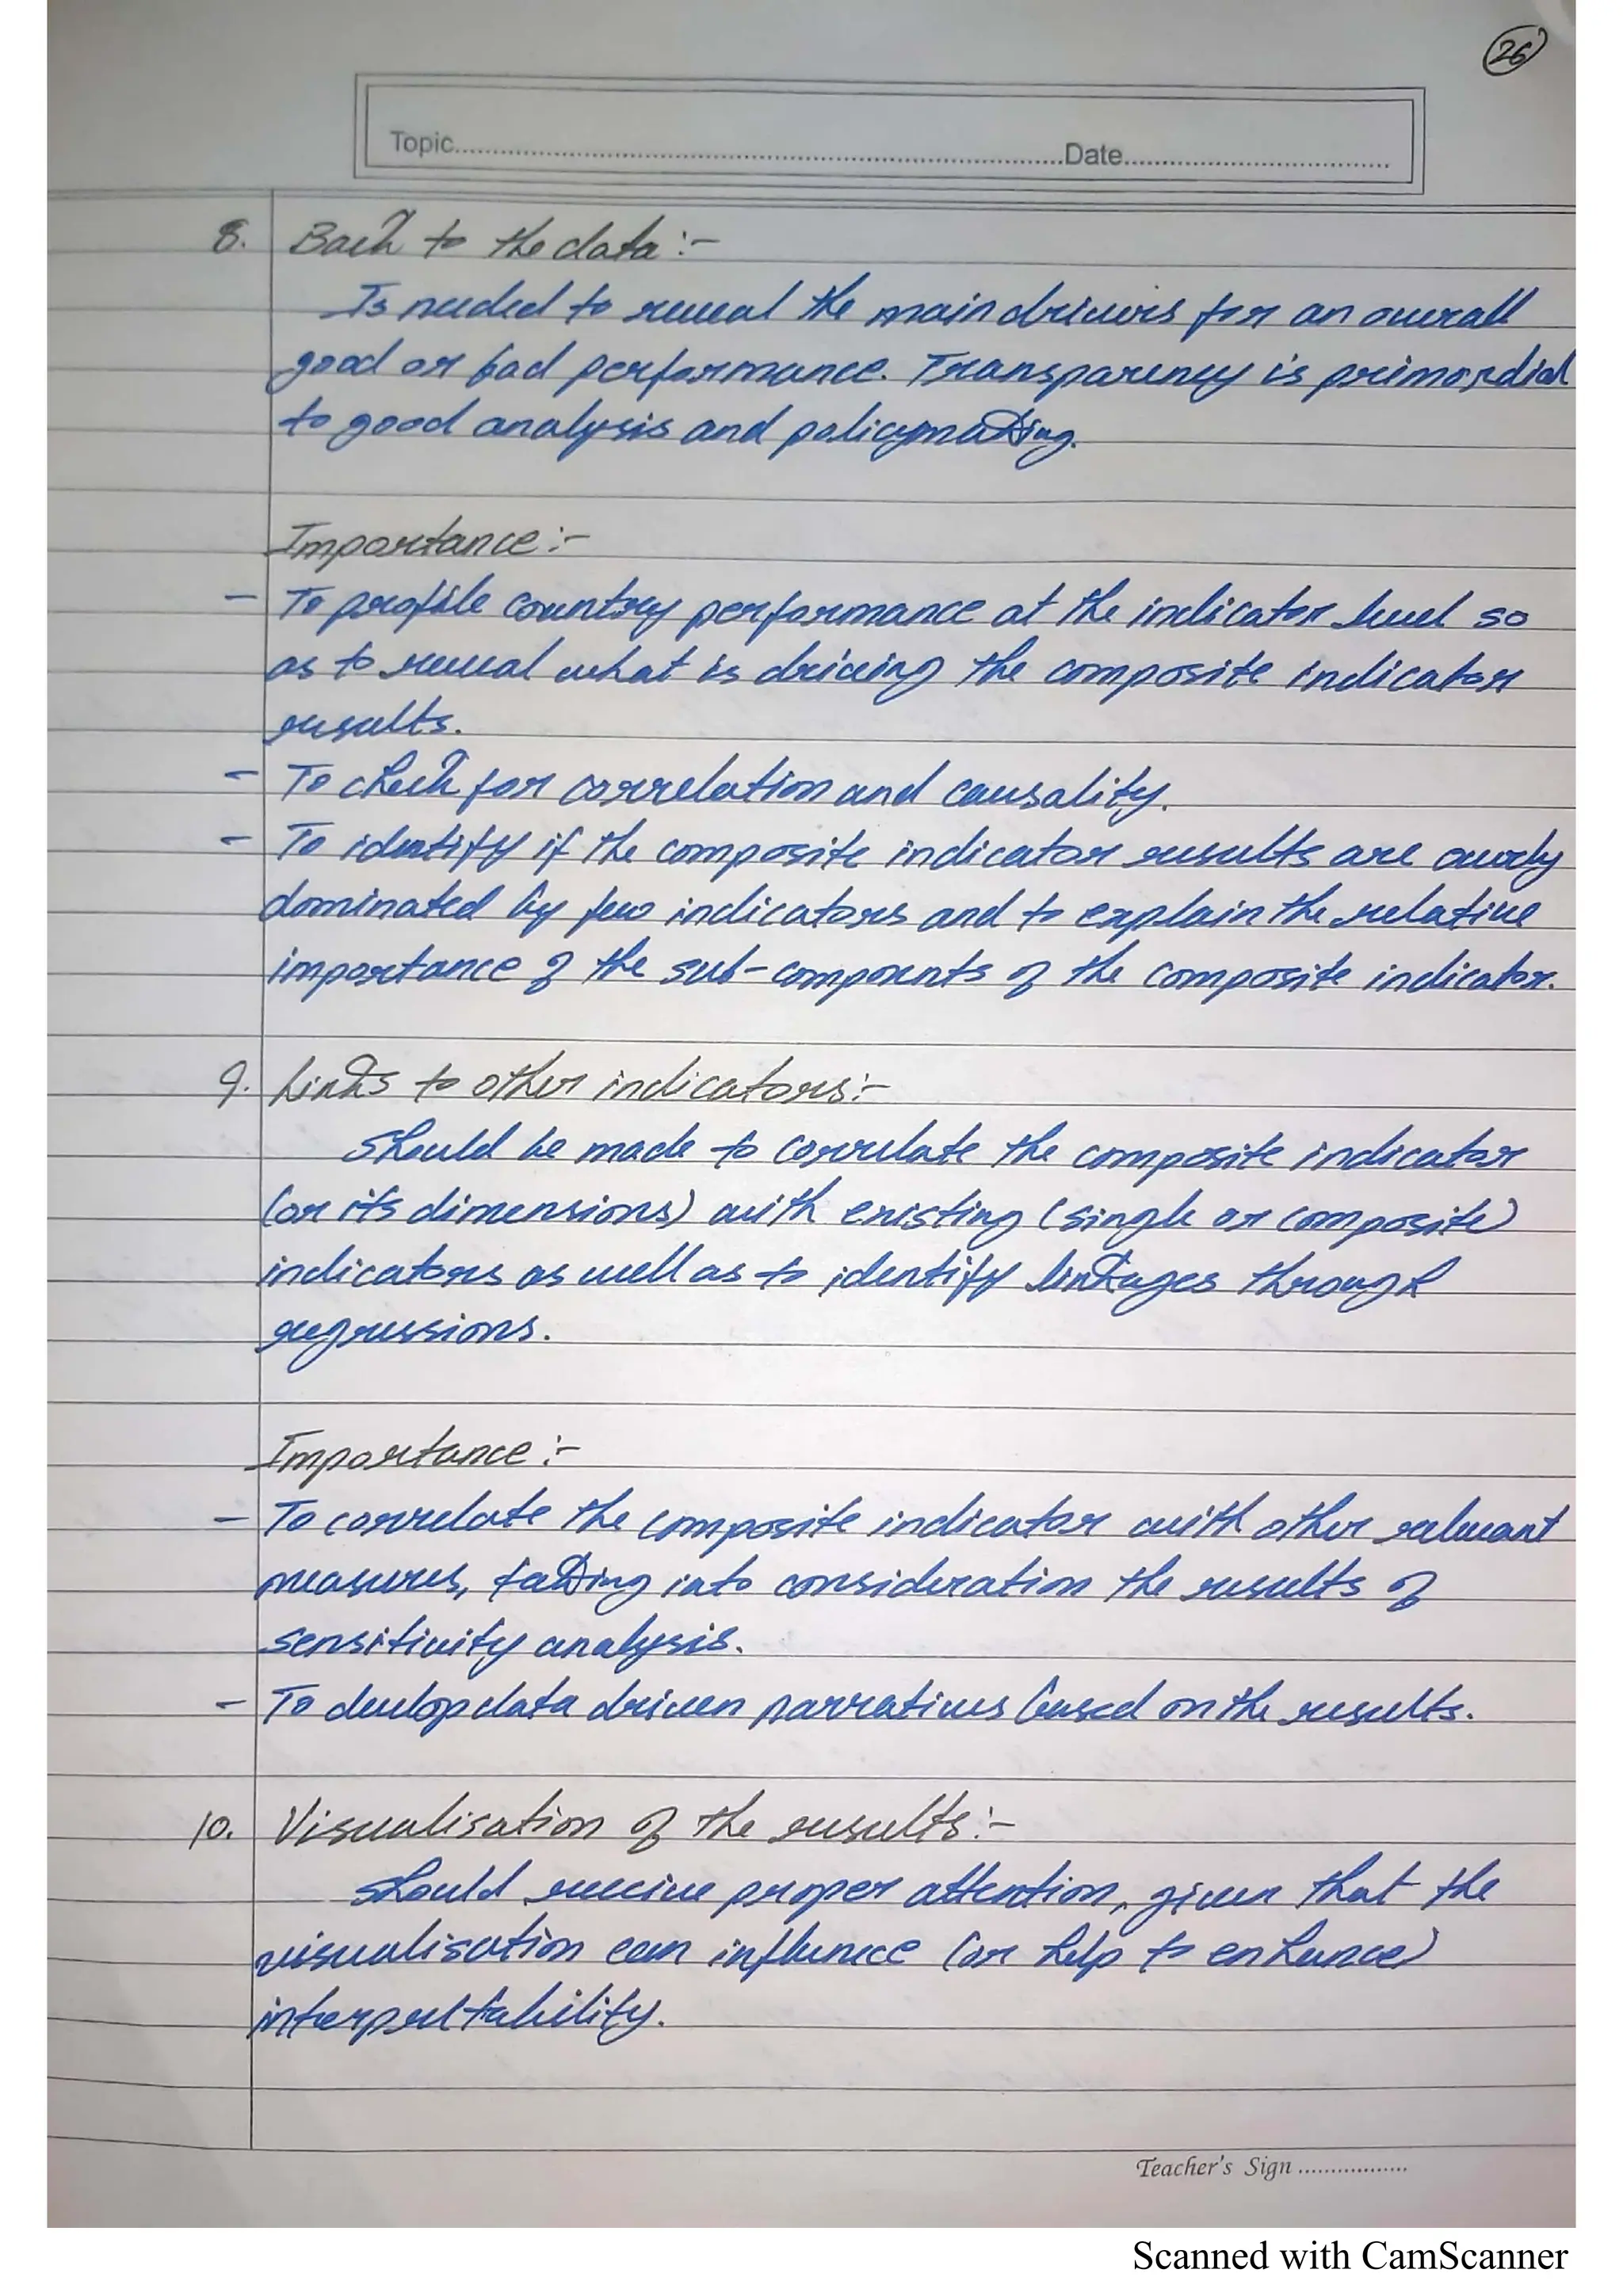 26
Topic..........Date..........
8. Back to the data :-
Is needed to reveal the main drivers for an overall
good or bad performance. Transparency is primordial
to good analysis and policymaking.
Importance :-
- To profile country performance at the indicator level so
as to reveal what is driving the composite indicator
results.
- To check for correlation and causality.
- To identify if the composite indicator results are overly
dominated by few indicators and to explain the relative
importance of the sub-components of the composite indicator.
9. Links to other indicators :-
Should be made to correlate the composite indicator
(or its dimensions) with existing (single or composite)
indicators as well as to identify linkages through
regressions.
Importance :-
- To correlate the composite indicator with other relevant
measures, taking into consideration the results of
sensitivity analysis.
- To develop data driven narratives based on the results.
10. Visualisation of the results :-
Should receive proper attention, given that the
visualisation can influence (or help to enhance)
interpretability.
Teacher's Sign ..................
Scanned with CamScanner